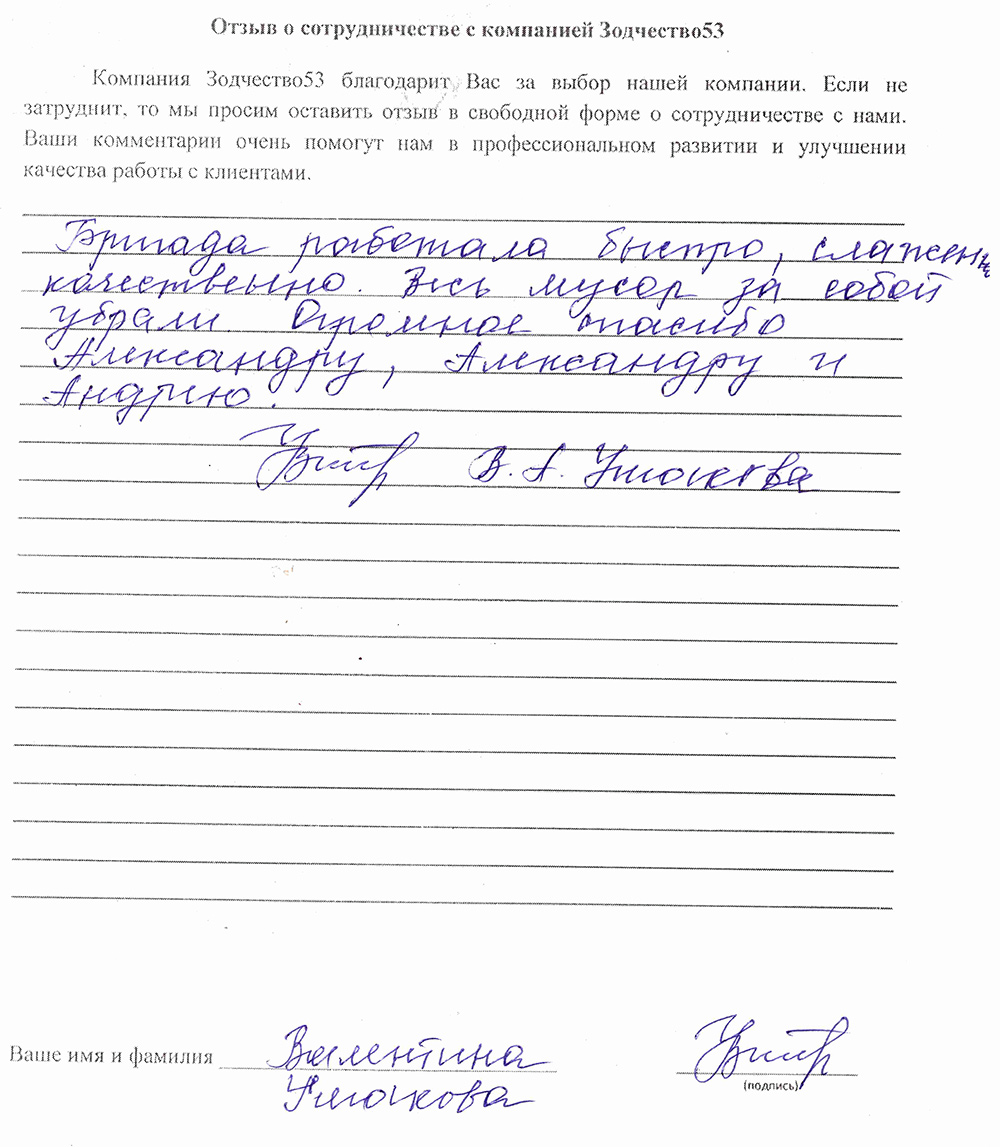 Отзыв о сотрудничестве с компанией Зодчество53
Компания Зодчество53 благодарит Вас за выбор нашей компании. Если не
затруднит, то мы просим оставить отзыв в свободной форме о сотрудничестве с нами.
Ваши комментарии очень помогут нам в профессиональном развитии и улучшении
качества работы с клиентами.
Бригада работала быстро, слаженно
качественно. Весь мусор за собой
убрали. Огромное спасибо
Александру, Александру и
Андрею.
В. А.
Ваше имя и фамилия Валентина
(подпись)